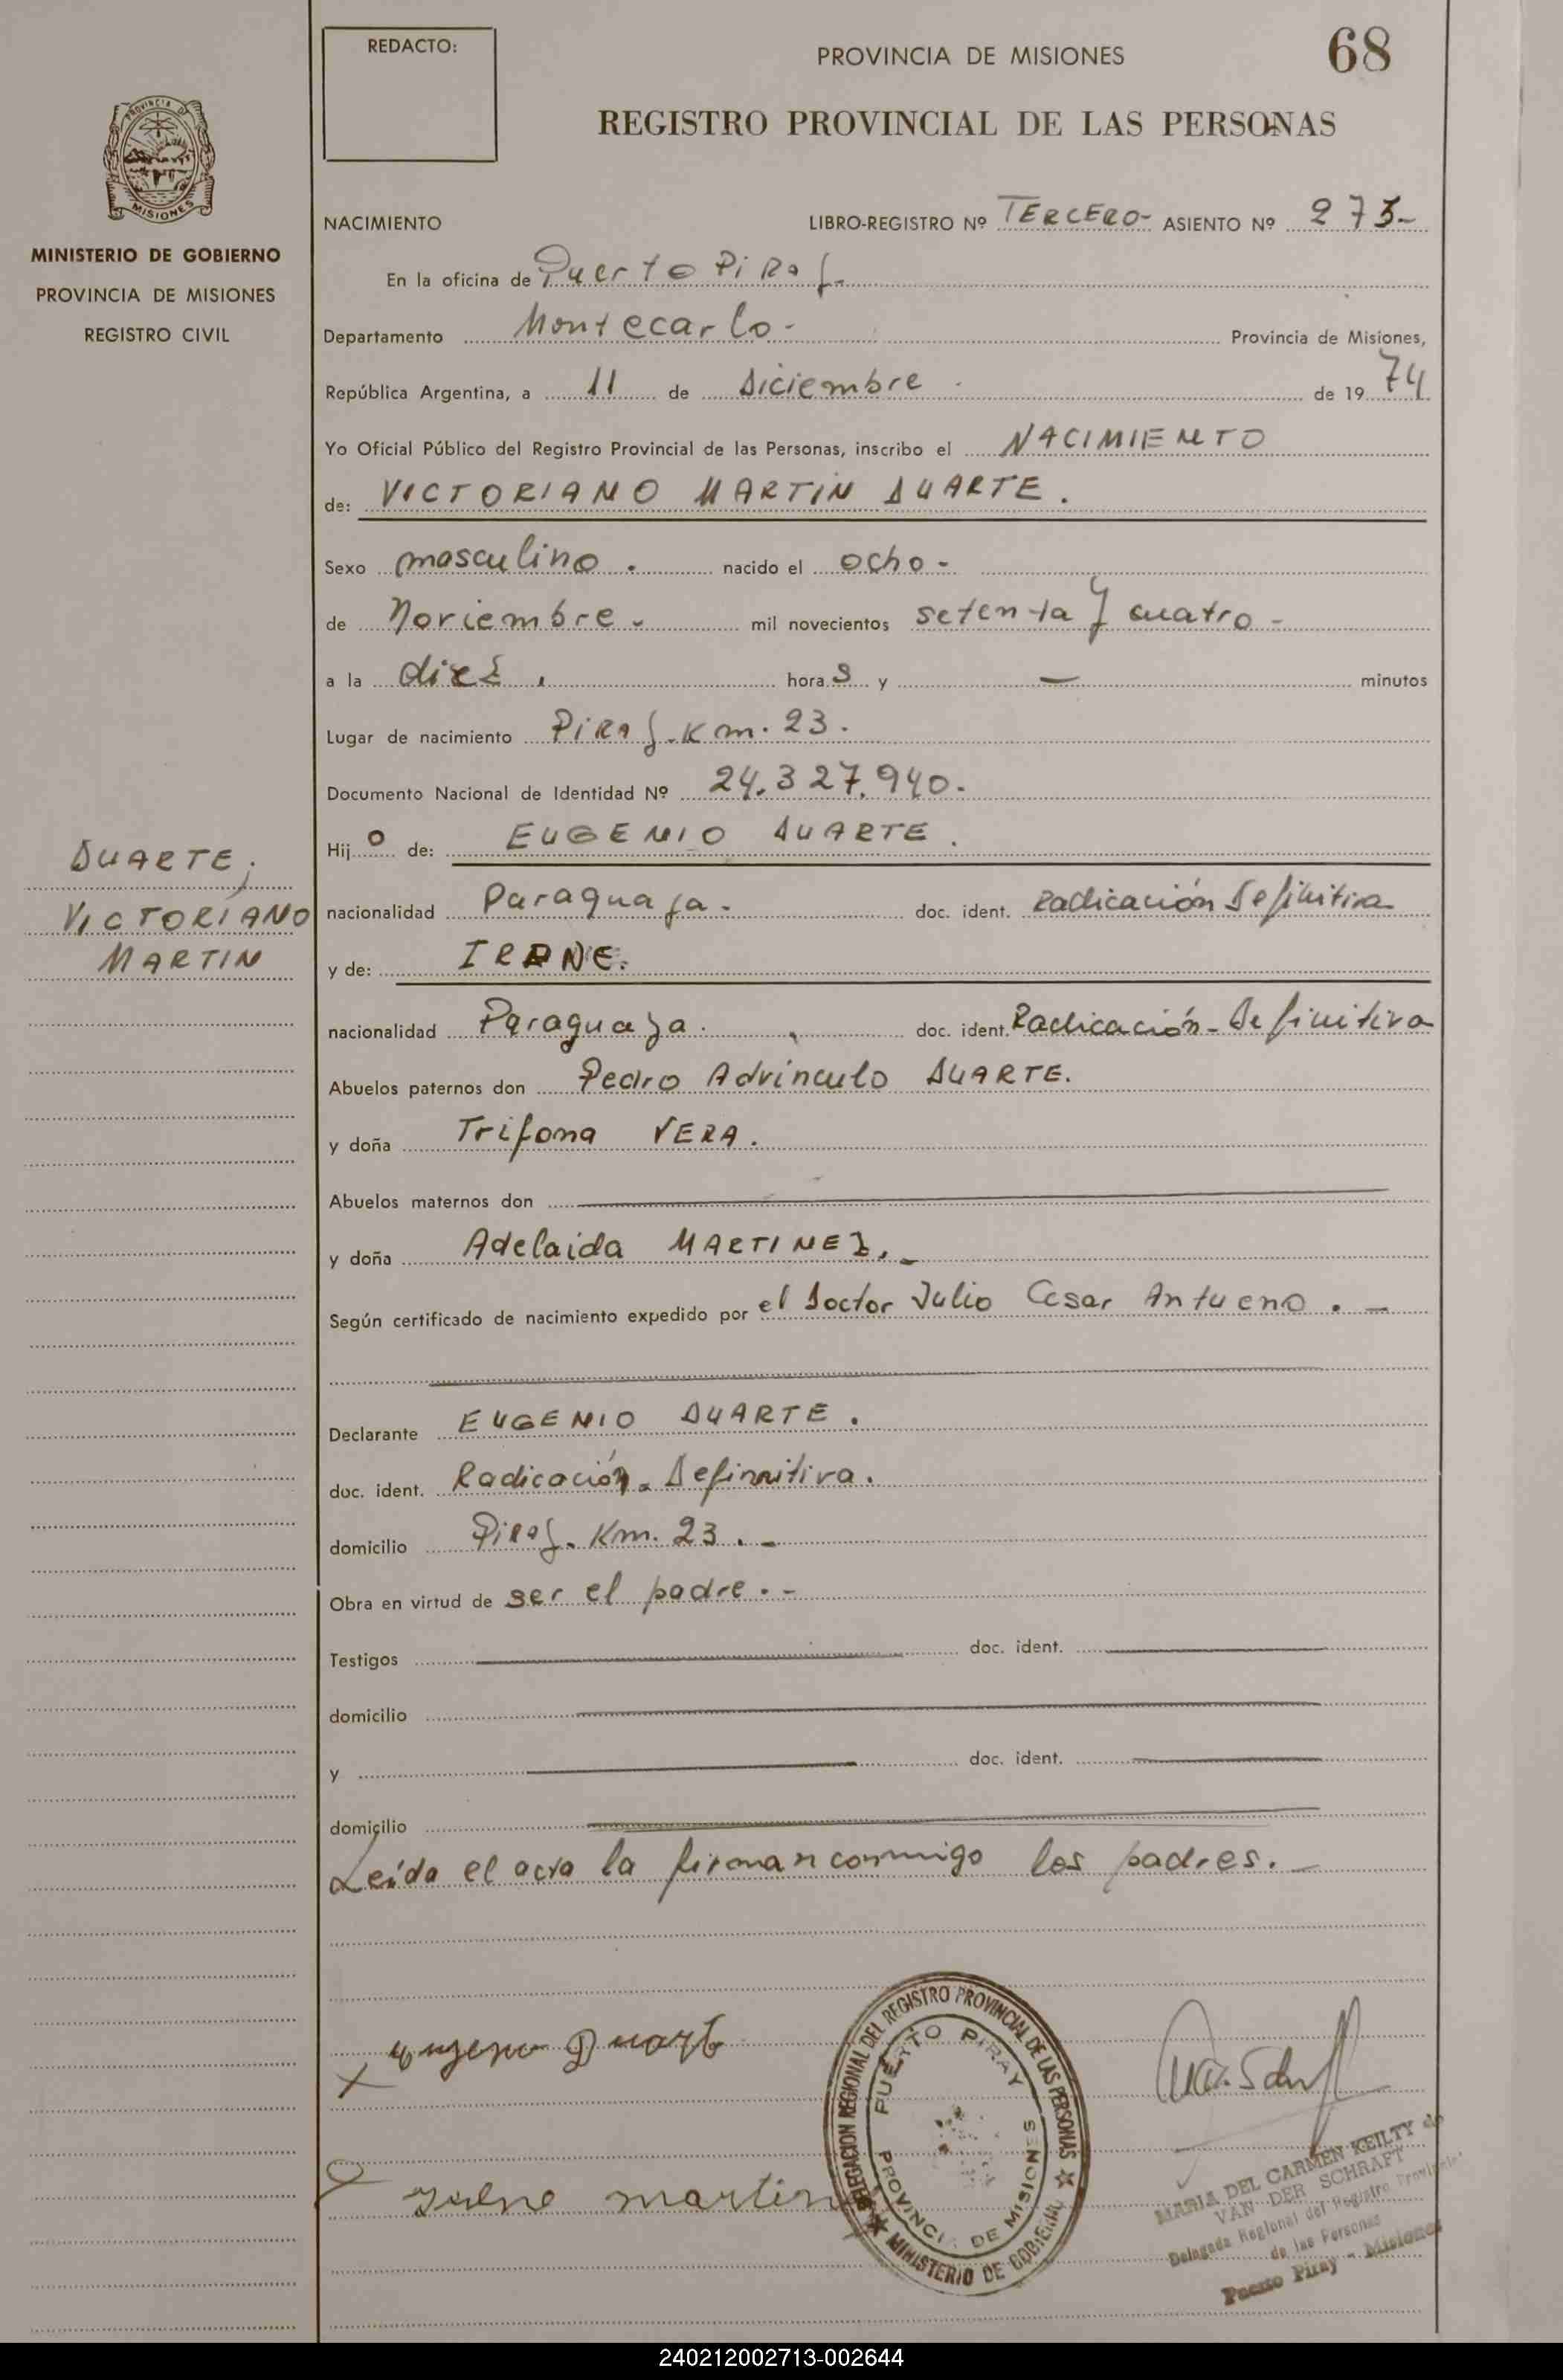 REDACTO:
PROVINCIA DE MISIONES
68
REGISTRO PROVINCIAL DE LAS PERSONAS
PROVINCIA DE
MISIONES
MINISTERIO DE GOBIERNO
PROVINCIA DE MISIONES
REGISTRO CIVIL
NACIMIENTO LIBRO-REGISTRO Nº TERCERO- ASIENTO Nº 273-
En la oficina de Puerto Piray.
Departamento Montecarlo- Provincia de Misiones,
República Argentina, a 11 de Diciembre de 1974
Yo Oficial Público del Registro Provincial de las Personas, inscribo el NACIMIENTO
de: VICTORIANO MARTIN DUARTE.
Sexo masculino. nacido el ocho-
de Noviembre- mil novecientos setenta y cuatro-
a la diez. horas y — minutos
Lugar de nacimiento Piray-Km. 23.
Documento Nacional de Identidad Nº 24.327.940.
Hijo de: EUGENIO DUARTE.
DUARTE,
VICTORIANO
MARTIN
nacionalidad Paraguaya- doc. ident. Radicación Definitiva
y de:
nacionalidad Paraguaya. doc. ident. Radicación-Definitiva
Abuelos paternos don Pedro Advinculo DUARTE.
y doña Trifona VERA.
Abuelos maternos don
y doña Adelaida MARTINEZ.-
Según certificado de nacimiento expedido por el Doctor Julio Cesar Antueno.-
Declarante EUGENIO DUARTE.
doc. ident. Radicación-Definitiva.
domicilio Piray- Km. 23.-
Obra en virtud de ser el padre.-
Testigos doc. ident.
domicilio
y doc. ident.
domicilio
Leída el acta la firman conmigo los padres.-
DELEGACION REGIONAL DEL REGISTRO PROVINCIAL DE LAS PERSONAS
MINISTERIO DE GOBIERNO
PUERTO PIRAY
PROVINCIA DE MISIONES
X Eugenio Duarte
MARIA DEL CARMEN KEILTY de
VAN DER SCHRAFT
Delegada Regional del Registro Provincial
de las Personas
Puerto Piray - Misiones
240212002713-002644